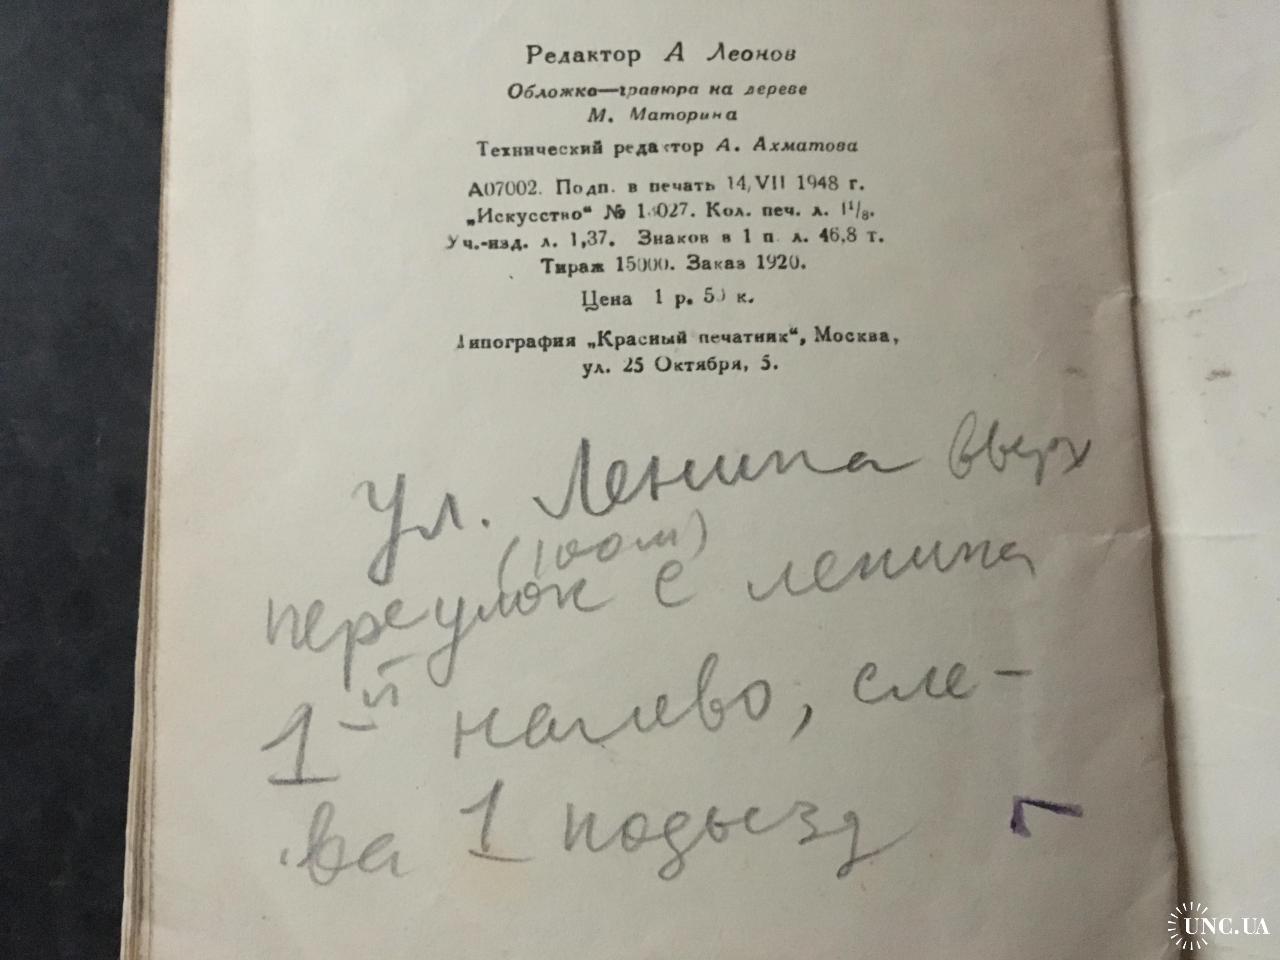 Редактор А Леонов
Обложка—гравюра на дереве
М. Маторина
Технический редактор А. Ахматова
А07002. Подп. в печать 14/VII 1948 г.
„Искусство“ № 1 027. Кол. печ. л. 1¹/₈.
Уч.-изд. л. 1,37. Знаков в 1 п. л. 46,8 т.
Тираж 15000. Заказ 1920.
Цена 1 р. 50 к.
Типография „Красный печатник“, Москва,
ул. 25 Октября, 5.
ул. Ленина вверх
(100 м)
переулок с ленина
1-й налево, сле-
ва 1 подьезд
UNC.UA